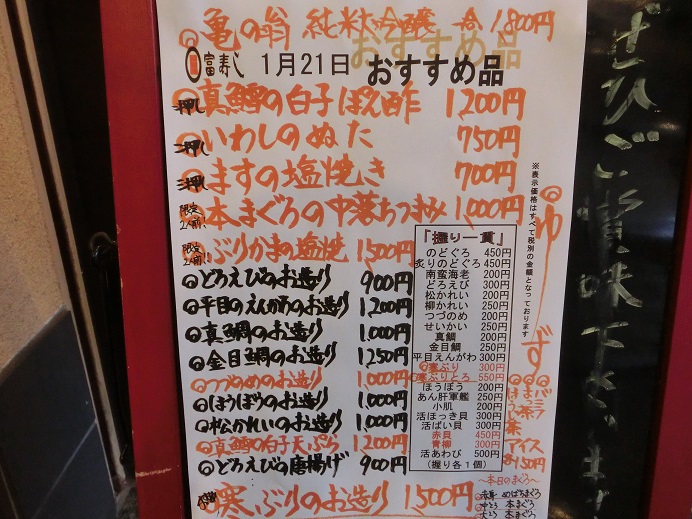 ◎亀の翁 純米大吟醸 一合 1,800円
富寿し 1月21日 おすすめ品
押し ◎真鱈の白子ぽん酢 1,200円
押し ◎いわしのぬた 750円
押し ◎ますの塩焼き 700円
限定2人前! ◎本まぐろの中落ちつまみ 1,000円
限定 ◎ぶりかまの塩焼 1,500円
◎どろえびのお造り 900円
◎平目のえんがわのお造り 1,200円
◎真鯛のお造り 1,000円
◎金目鯛のお造り 1,250円
◎つづのめのお造り 1,000円
◎ほうぼうのお造り 1,000円
◎松かれいのお造り 1,000円
◎真鱈の白子天ぷら 1,200円
◎どろえびの唐揚げ 900円
寒ぶりのお造り 1,500円
『握り一貫』
のどぐろ 450円
炙りのどぐろ 450円
南蛮海老 200円
どろえび 300円
松かれい 200円
柳かれい 250円
つづのめ 200円
せいかい 250円
真鯛 200円
金目鯛 250円
平目えんがわ 300円
◎寒ぶり 300円
◎寒ぶりとろ 550円
ほうぼう 200円
あん肝軍艦 250円
小肌 200円
活ほっき貝 300円
活ばい貝 300円
赤貝 450円
青柳 300円
活あわび 500円
(握り各1個)
※表示価格はすべて税別の金額となっております
◎ゆず
◎バニラ
◎まっ茶
◎ほうじ茶
アイス
各150円
〜本日のまぐろ〜
赤身 めばちまぐろ
中とろ 本まぐろ
大とろ 本まぐろ
ぜひご賞味下さいませ